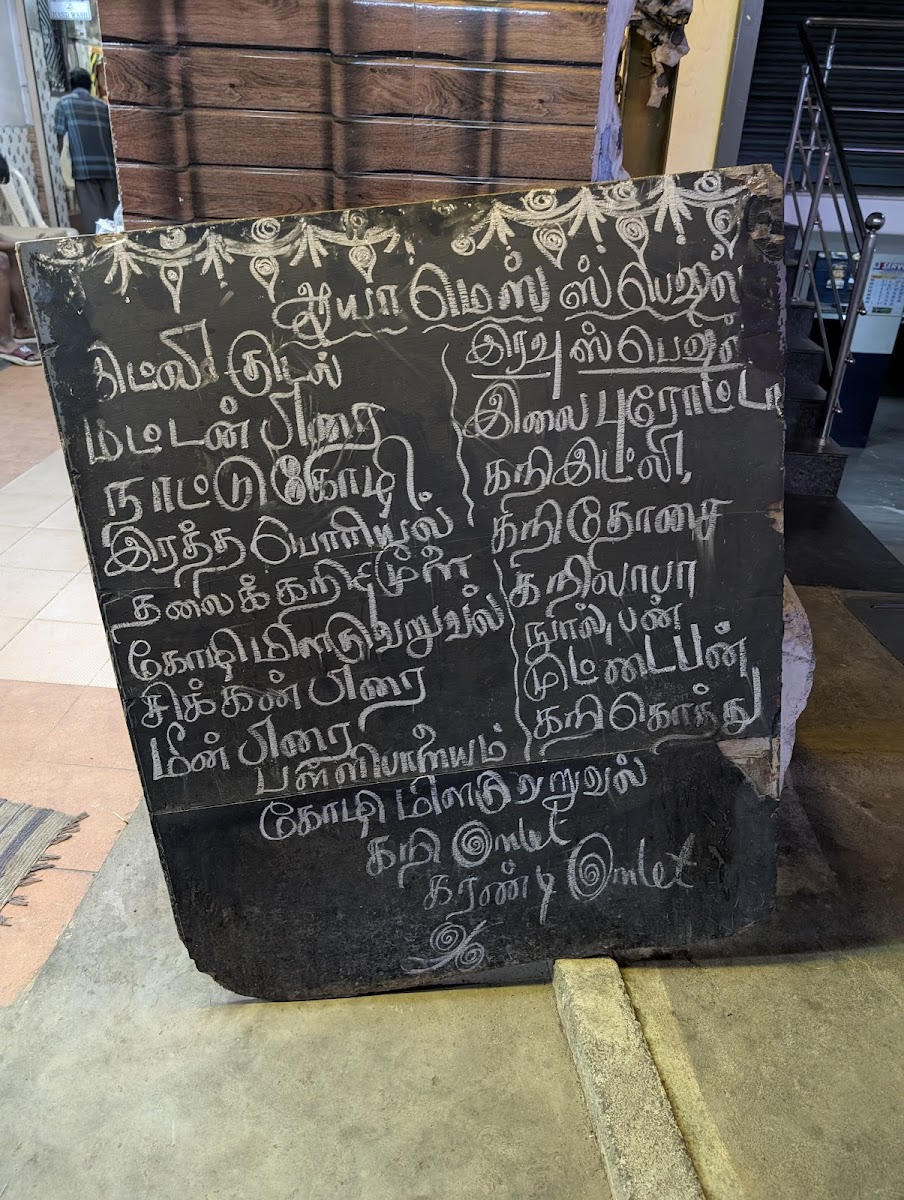 HAND WASH
ஆயா மெஸ் ஸ்பெஷல்
குடல்
மட்டன் பிரை
நாட்டு கோழி
இரத்த பொரியல்
தலைக்கறி மூளை
கோழி மிளகு வறுவல்
சிக்கன் பிரை
மீன் பிரை
பள்ளிபாளையம்
கோழி மிளகு வறுவல்
கறி Omlet
கரண்டி Omlet
இரவு ஸ்பெஷல்
இலை புரோட்டா
கறி இட்லி,
கறி தோசை
கறி லாபா
பன்
முட்டை பன்
கறி கொத்து